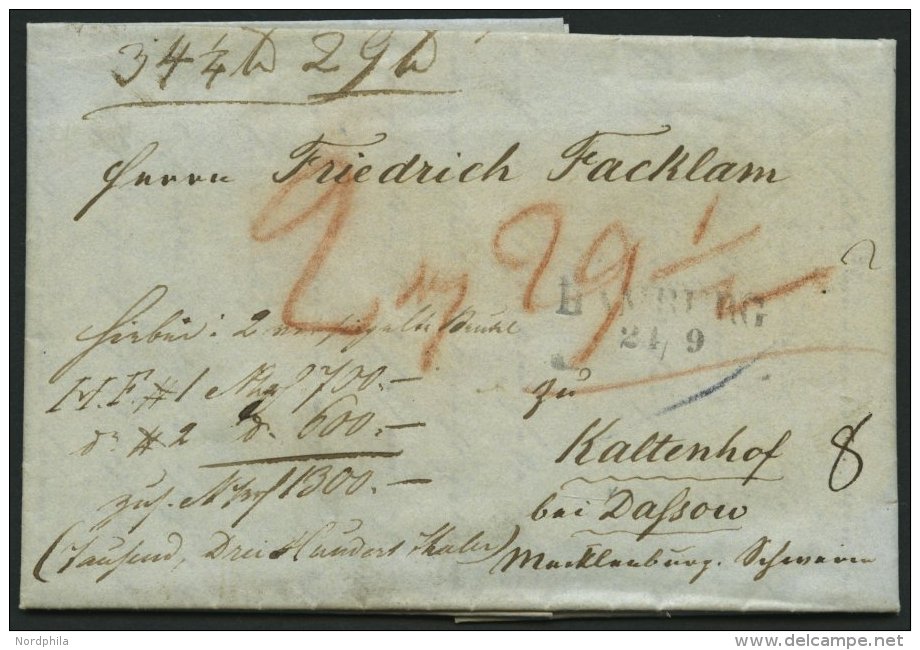 34¼ ℔ 29 ℔
Herrn Friedrich Facklam
2 29 1
HAMBURG
24/9
Hierbei: 2 versiegelte Beutel
M.F. #1 700.–
do #2 do. 600.–
zus. 1300.–
(Tausend, Drei Hundert Thaler)
zu
Kaltenhof
bei Dassow
Mecklenburg. Schwerin
8
Nordphila
delcampe.net